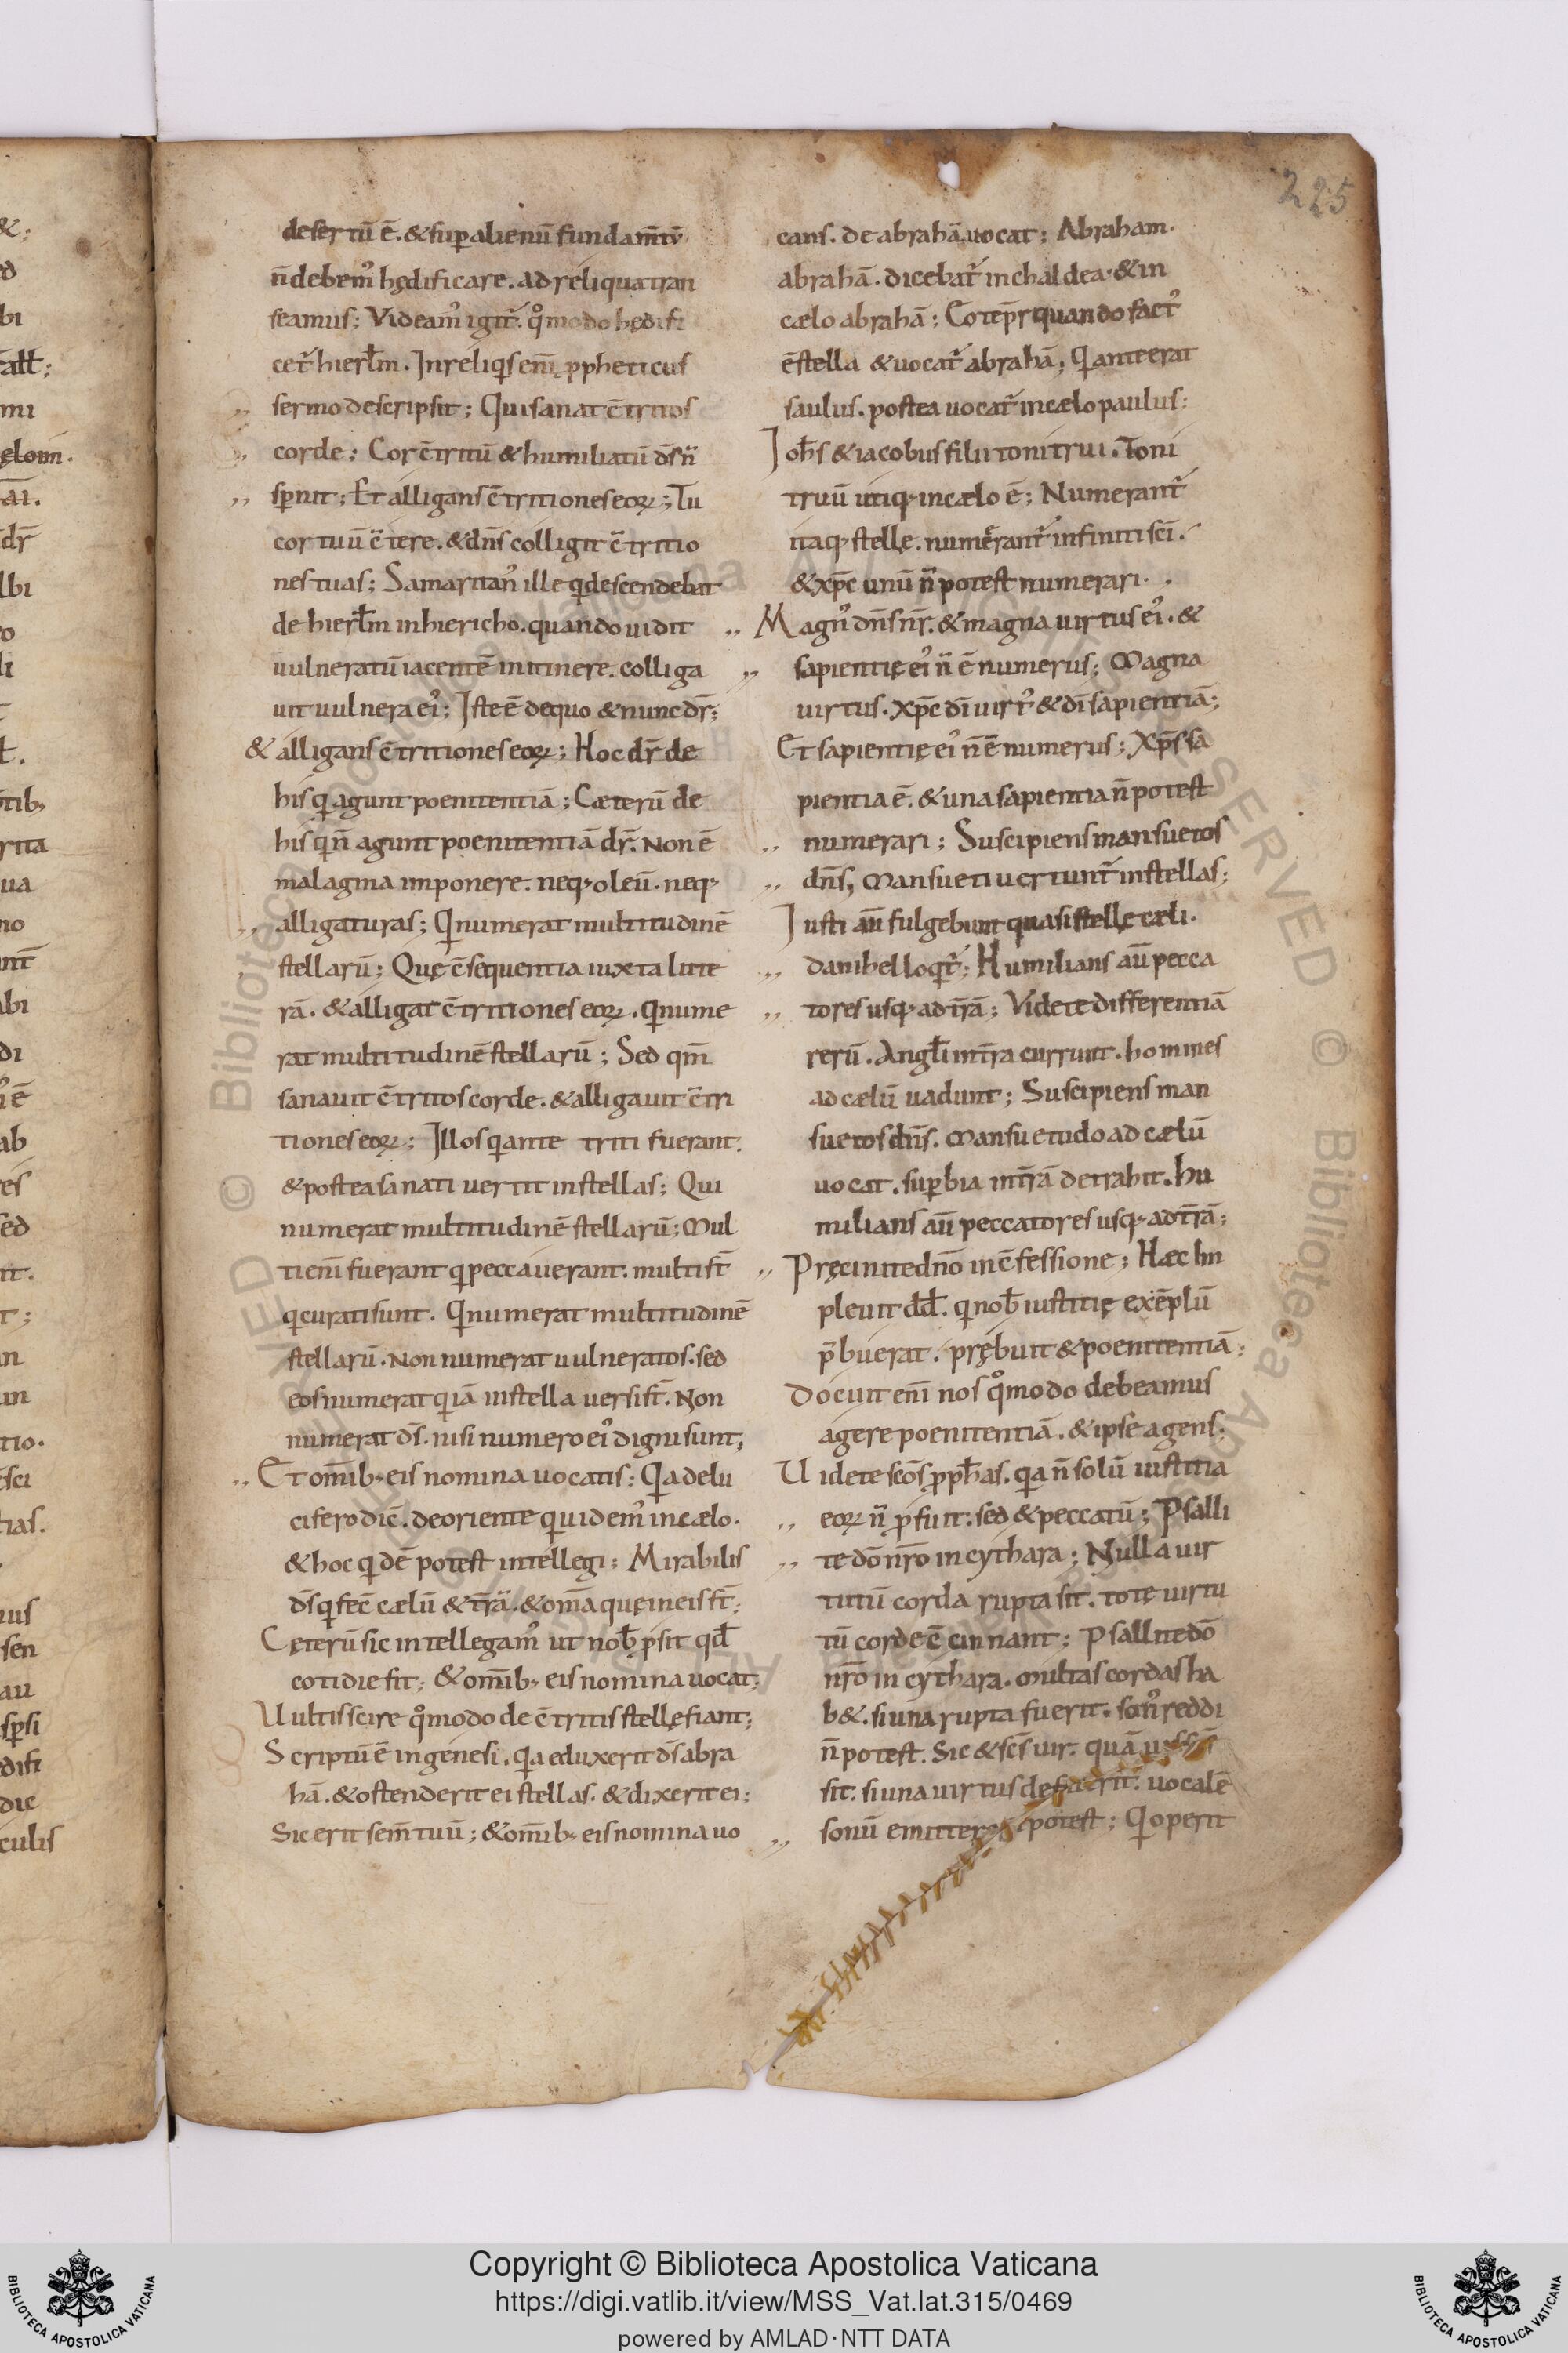 225
desertū ē. &sup alienū fundam̄tū
n̄ debem᾿ hędificare. ad reliqua tran
seamus; Videam᾿ igit᷑. qͦmodo hędifi
cet᷑ hierl̄m. In reliqͥs eni̅ ꝓpheticus
sermo descripsit; Qui sanat c̄tritos
corde; Cor c̄tritū & humiliatū d̄s n̄
sꝑnit; Et alligans c̄tritiones eoꝝ; Tu
cor tuū c̄tere. & dn̄s colligit c̄tritio
nes tuas; Samaritan᾿ ille qͥ descendebat
de hierl̄m in hiericho. quando uidit
uulneratū iacentē in itinere. colliga
uit uulnera ei᾿; Iste ē de quo & nunc dr̄;
& alligans c̄tritiones eoꝝ; Hoc dr̄ de
his qͥ agunt poenitentiā; Cæterū de
his qͥ n̄ agunt poenitentiā dr̄. Non ē
malagma imponere. neq; oleū. neq;
alligaturas; Qͥ numerat multitudinē
stellarū; Quę c̄sequentia iuxta litte
rā. & alligat c̄tritiones eoꝝ. qͥ nume
rat multitudinē stellarū; Sed qm̄
sanauit c̄tritos corde. & alligauit c̄tri
tiones eoꝝ; Illos qͥ ante triti fuerant.
& postea sanati uertit in stellas; Qui
numerat multitudinē stellarū; Mul
ti eni̅ fuerant qͥ peccauerant. multi st̄
qͥ curati sunt. Qͥ numerat multitudinē
stellarū. Non numerat uulneratos. sed
eos numerat qͥ iā in stella uersi st̄. Non
numerat d̄s. nisi numero ei᾿ digni sunt;
Et om̄ib; eis nomina uocatis; Qͣ de lu
cifero dic̄. de oriente quidem᾿ in cælo.
& hoc qͥdē potest intellegi; Mirabilis
d̄s qͥ fec̄ cælū & tr̄ā. & om̄a quę in eis st̄;
Cęterū sic intellegam᾿ ut nob̄ ꝓsit qd̄
cotidie fit; & om̄ib; eis nomina uocat;
Uultis scire qͦmodo de c̄tritis stellę fiant;
Scriptū ē in genesi. qͣ eduxerit d̄s abra
hā. & ostenderit ei stellas. & dixerit ei;
Sic erit sem̄ tuū; & om̄ib; eis nomina uo
cans. de abrahā uocat; Abraham.
abrahā. dicebat᷑ in chaldea. & in
cælo abrahā; Eo tēpr̄ quando fact᾿
ē stella & uocat᷑ abrahā; Qͥ ante erat
saulus. postea uocat᷑ in cælo paulus;
Ioh̄s & iacobus filii tonitrui. Toni
truū utiq; in cælo ē; Numerant᷑
itaq; stellę. numerant᷑ infiniti sc̄i.
& xp̄c unū n̄ potest numerari.
Magn᾿ dn̄s nr̄. & magna uirtus ei᾿. &
sapientię ei᾿ n̄ ē numerus; Magna
uirtus. xp̄c dī uirt᾿ & dī sapientiā;
Et sapientię ei᾿ n̄ ē numerus; Xp̄s sa
pientia ē. & una sapientia n̄ potest
numerari; Suscipiens mansuetos
dn̄s, Mansueti uertunt᷑ in stellas;
Iusti aū fulgebunt quasi stellę cæli.
danihel loqͥt᷑; Humilians aū pecca
tores usq; ad tr̄ā; Videte differentiā
rerū. Angl̄i in tr̄a currunt. homines
ad cælū uadunt; Suscipiens man
suetos dn̄s. Mansuetudo ad cælū
uocat. supbia in tr̄ā detrahit. hu
milians aū peccatores usq; ad tr̄ā;
Pręcinite dn̄o in c̄fessione; Hæc im
pleuit dd̄. qͥ nob̄ iustitię exēplū
p̄buerat. prębuit & poenitentiā;
Docuit eni̅ nos qͦmodo debeamus
agere poenitentiā. & ipse agens;
Uidete sc̄os ꝓph̄as. qͣ n̄ solū iustitia
eoꝝ n̄ ꝓfuit; sed & peccatū; Psalli
te dō nr̄o in cythara; Nulla uir
tutū corda rupta sit. totę uirtu
tū cordę c̄cinnant; Psallite dō
nr̄o in cythara. Multas cordas ha
b&. si una rupta fuerit. son᾿ reddi
n̄ potest. Sic & sc̄s uir. quāuis sc̄s
sit; si una uirtus defuerit. uocalē
sonū emittere n̄ potest; Qͥ operit
Copyright © Biblioteca Apostolica Vaticana
https://digi.vatlib.it/view/MSS_Vat.lat.315/0469
powered by AMLAD·NTT DATA
BIBLIOTECA APOSTOLICA VATICANA
BIBLIOTECA APOSTOLICA VATICANA